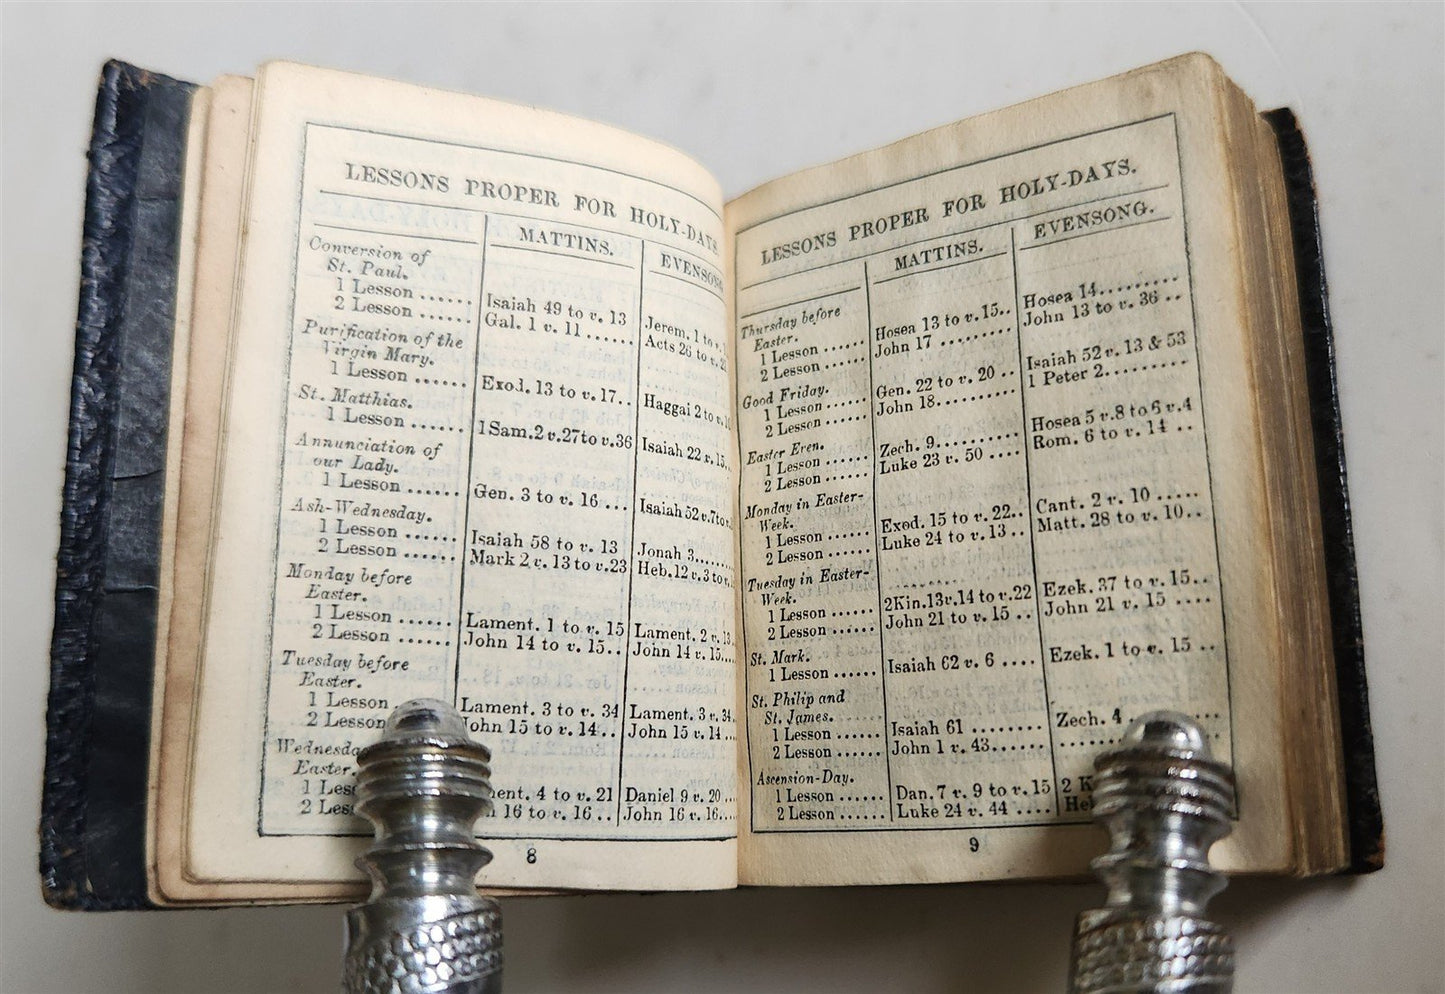 LESSONS PROPER FOR HOLY-DAYS
MATTINS. EVENSONG
Conversion of
St. Paul.
1 Lesson ...... Isaiah 49 to v. 13 Jerem. 1 to v.
2 Lesson ...... Gal. 1 v. 11 ...... Acts 26 to v.
Purification of the
Virgin Mary.
1 Lesson ...... Exod. 13 to v. 17.. Haggai 2 to v.
St. Matthias.
1 Lesson ...... 1 Sam. 2 v. 27 to v. 36 Isaiah 22 v. 15..
Annunciation of
our Lady.
1 Lesson ...... Gen. 3 to v. 16 ... Isaiah 52 v. 7 to v.
Ash-Wednesday.
1 Lesson ...... Isaiah 58 to v. 13 Jonah 3.......
2 Lesson ...... Mark 2 v. 13 to v. 23 Heb. 12 v. 3 to v.
Monday before
Easter.
1 Lesson ...... Lament. 1 to v. 15 Lament. 2 v. 13
2 Lesson ...... John 14 to v. 15.. John 14 v. 15....
Tuesday before
Easter.
1 Lesson Lament. 3 to v. 34 Lament. 3 v. 34.
2 Lesson John 15 to v. 14.. John 15 v. 14...
Wednesday
Easter.
1 4 to v. 21 Daniel 9 v. 20...
2 16 to v. 16.. John 16 v. 16....
8
LESSONS PROPER FOR HOLY-DAYS.
MATTINS. EVENSONG.
Thursday before
Easter.
1 Lesson ...... Hosea 13 to v. 15.. Hosea 14.........
2 Lesson ...... John 17 ........ John 13 to v. 36 ..
Good Friday.
1 Lesson ...... Gen. 22 to v. 20 .. Isaiah 52 v. 13 & 53
2 Lesson ...... John 18......... 1 Peter 2.........
Easter Even.
1 Lesson ...... Zech. 9.......... Hosea 5 v. 8 to 6 v. 4
2 Lesson ...... Luke 23 v. 50 .... Rom. 6 to v. 14 ..
Monday in Easter-
Week.
1 Lesson ...... Exod. 15 to v. 22.. Cant. 2 v. 10 .....
2 Lesson ...... Luke 24 to v. 13 .. Matt. 28 to v. 10..
Tuesday in Easter-
Week.
1 Lesson ...... 2 Kin. 13 v. 14 to v. 22 Ezek. 37 to v. 15..
2 Lesson ...... John 21 to v. 15 .. John 21 v. 15 ....
St. Mark.
1 Lesson ...... Isaiah 62 v. 6 .... Ezek. 1 to v. 15 ..
St. Philip and
St. James.
1 Lesson ...... Isaiah 61 ........ Zech. 4
2 Lesson ...... John 1 v. 43......
Ascension-Day.
1 Lesson ...... Dan. 7 v. 9 to v. 15 2
2 Lesson ...... Luke 24 v. 44 ....
9